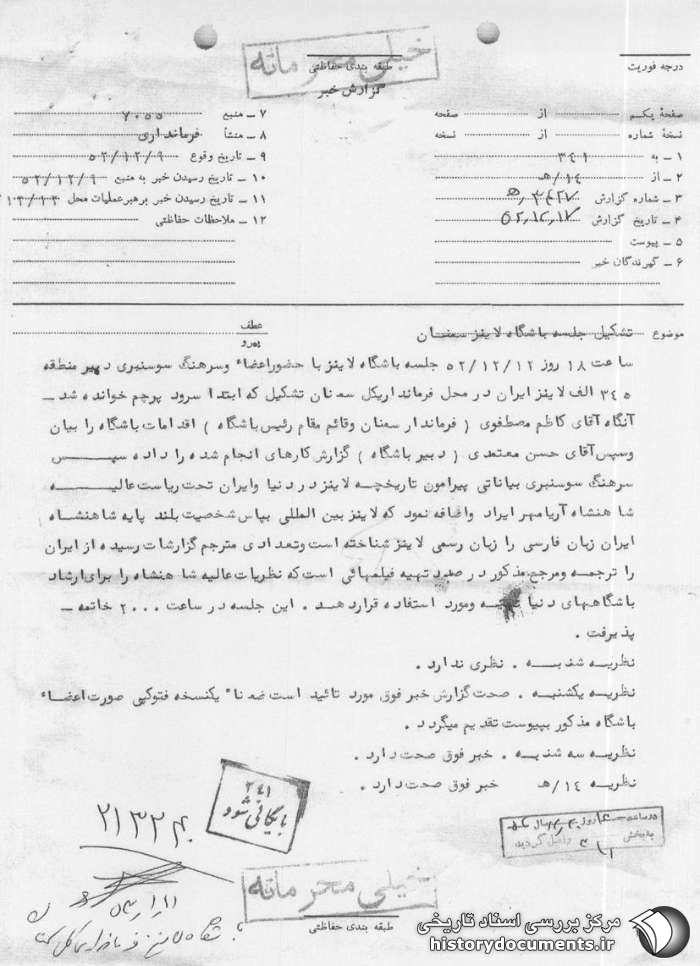 خیلی محرمانه
درجه فوریت
طبقه بندی حفاظتی
گزارش خبر
صفحهٔ یکم از صفحه
نسخهٔ شماره از نسخه
۱ ـ به ۳۴۱
۲ ـ از ۱۴/هـ
۳ ـ شماره گزارش
۴ ـ تاریخ گزارش ۵۲٫۱۲٫۱۷
۵ ـ پیوست
۶ ـ گیرندگان خبر
۷ ـ منبع ۷۰۵۵
۸ ـ منشأ فرمانداری
۹ ـ تاریخ وقوع ۵۲/۱۲/۹
۱۰ ـ تاریخ رسیدن خبر به منبع ۵۲/۱۲/۹
۱۱ ـ تاریخ رسیدن خبر برهبرعملیات محل ۱۲/۱۳
۱۲ ـ ملاحظات حفاظتی
موضوع تشکیل جلسه باشگاه لاینز سمنان
عطف
پیرو
ساعت ۱۸ روز ۵۲/۱۲/۱۲ جلسه باشگاه لاینز با حضور اعضاء وسرهنگ سوسنبری دبیر منطقه
۳۴۵ الف لاینز ایران در محل فرمانداریکل سمنان تشکیل که ابتدا سرود پرچم خوانده شد ـ
آنگاه آقای کاظم مصطفوی ( فرماندار سمنان وقائم مقام رئیس باشگاه ) اقدامات باشگاه را بیان
وسپس آقای حسن معتمدی ( دبیر باشگاه ) گزارش کارهای انجام شده را داده سپس
سرهنگ سوسنبری بیاناتی پیرامون تاریخچه لاینز در دنیا وایران تحت ریاست عالیه
شاهنشاه آریامهر ایراد واضافه نمود که لاینز بین المللی بپاس شخصیت بلند پایه شاهنشاه
ایران زبان فارسی را زبان رسمی لاینز شناخته است وتعدادی مترجم گزارشات رسیده از ایران
را ترجمه ومرجع مذکور در صدد تهیه فیلمهائی است که نظریات عالیه شاهنشاه را برای ارشاد
باشگاههای دنیا ومورد استفاده قرار دهد . این جلسه در ساعت ۲۰۰۰ خاتمه ـ
پذیرفت .
نظریه شنبه . نظری ندارد .
نظریه یکشنبه . صحت گزارش خبر فوق مورد تائید است ضمناً یکنسخه فتوکپی صورت اعضاء
باشگاه مذکور بپیوست تقدیم میگردد .
نظریه سه شنبه . خبر فوق صحت دارد .
نظریه ۱۴/هـ خبر فوق صحت دارد .
۳۴۱
بایگانی شود
در ساعت روز
به بخش ۳۴۱ واصل گردید
خیلی محرمانه
طبقه بندی حفاظتی
مرکز بررسی اسناد تاریخی
historydocuments.ir